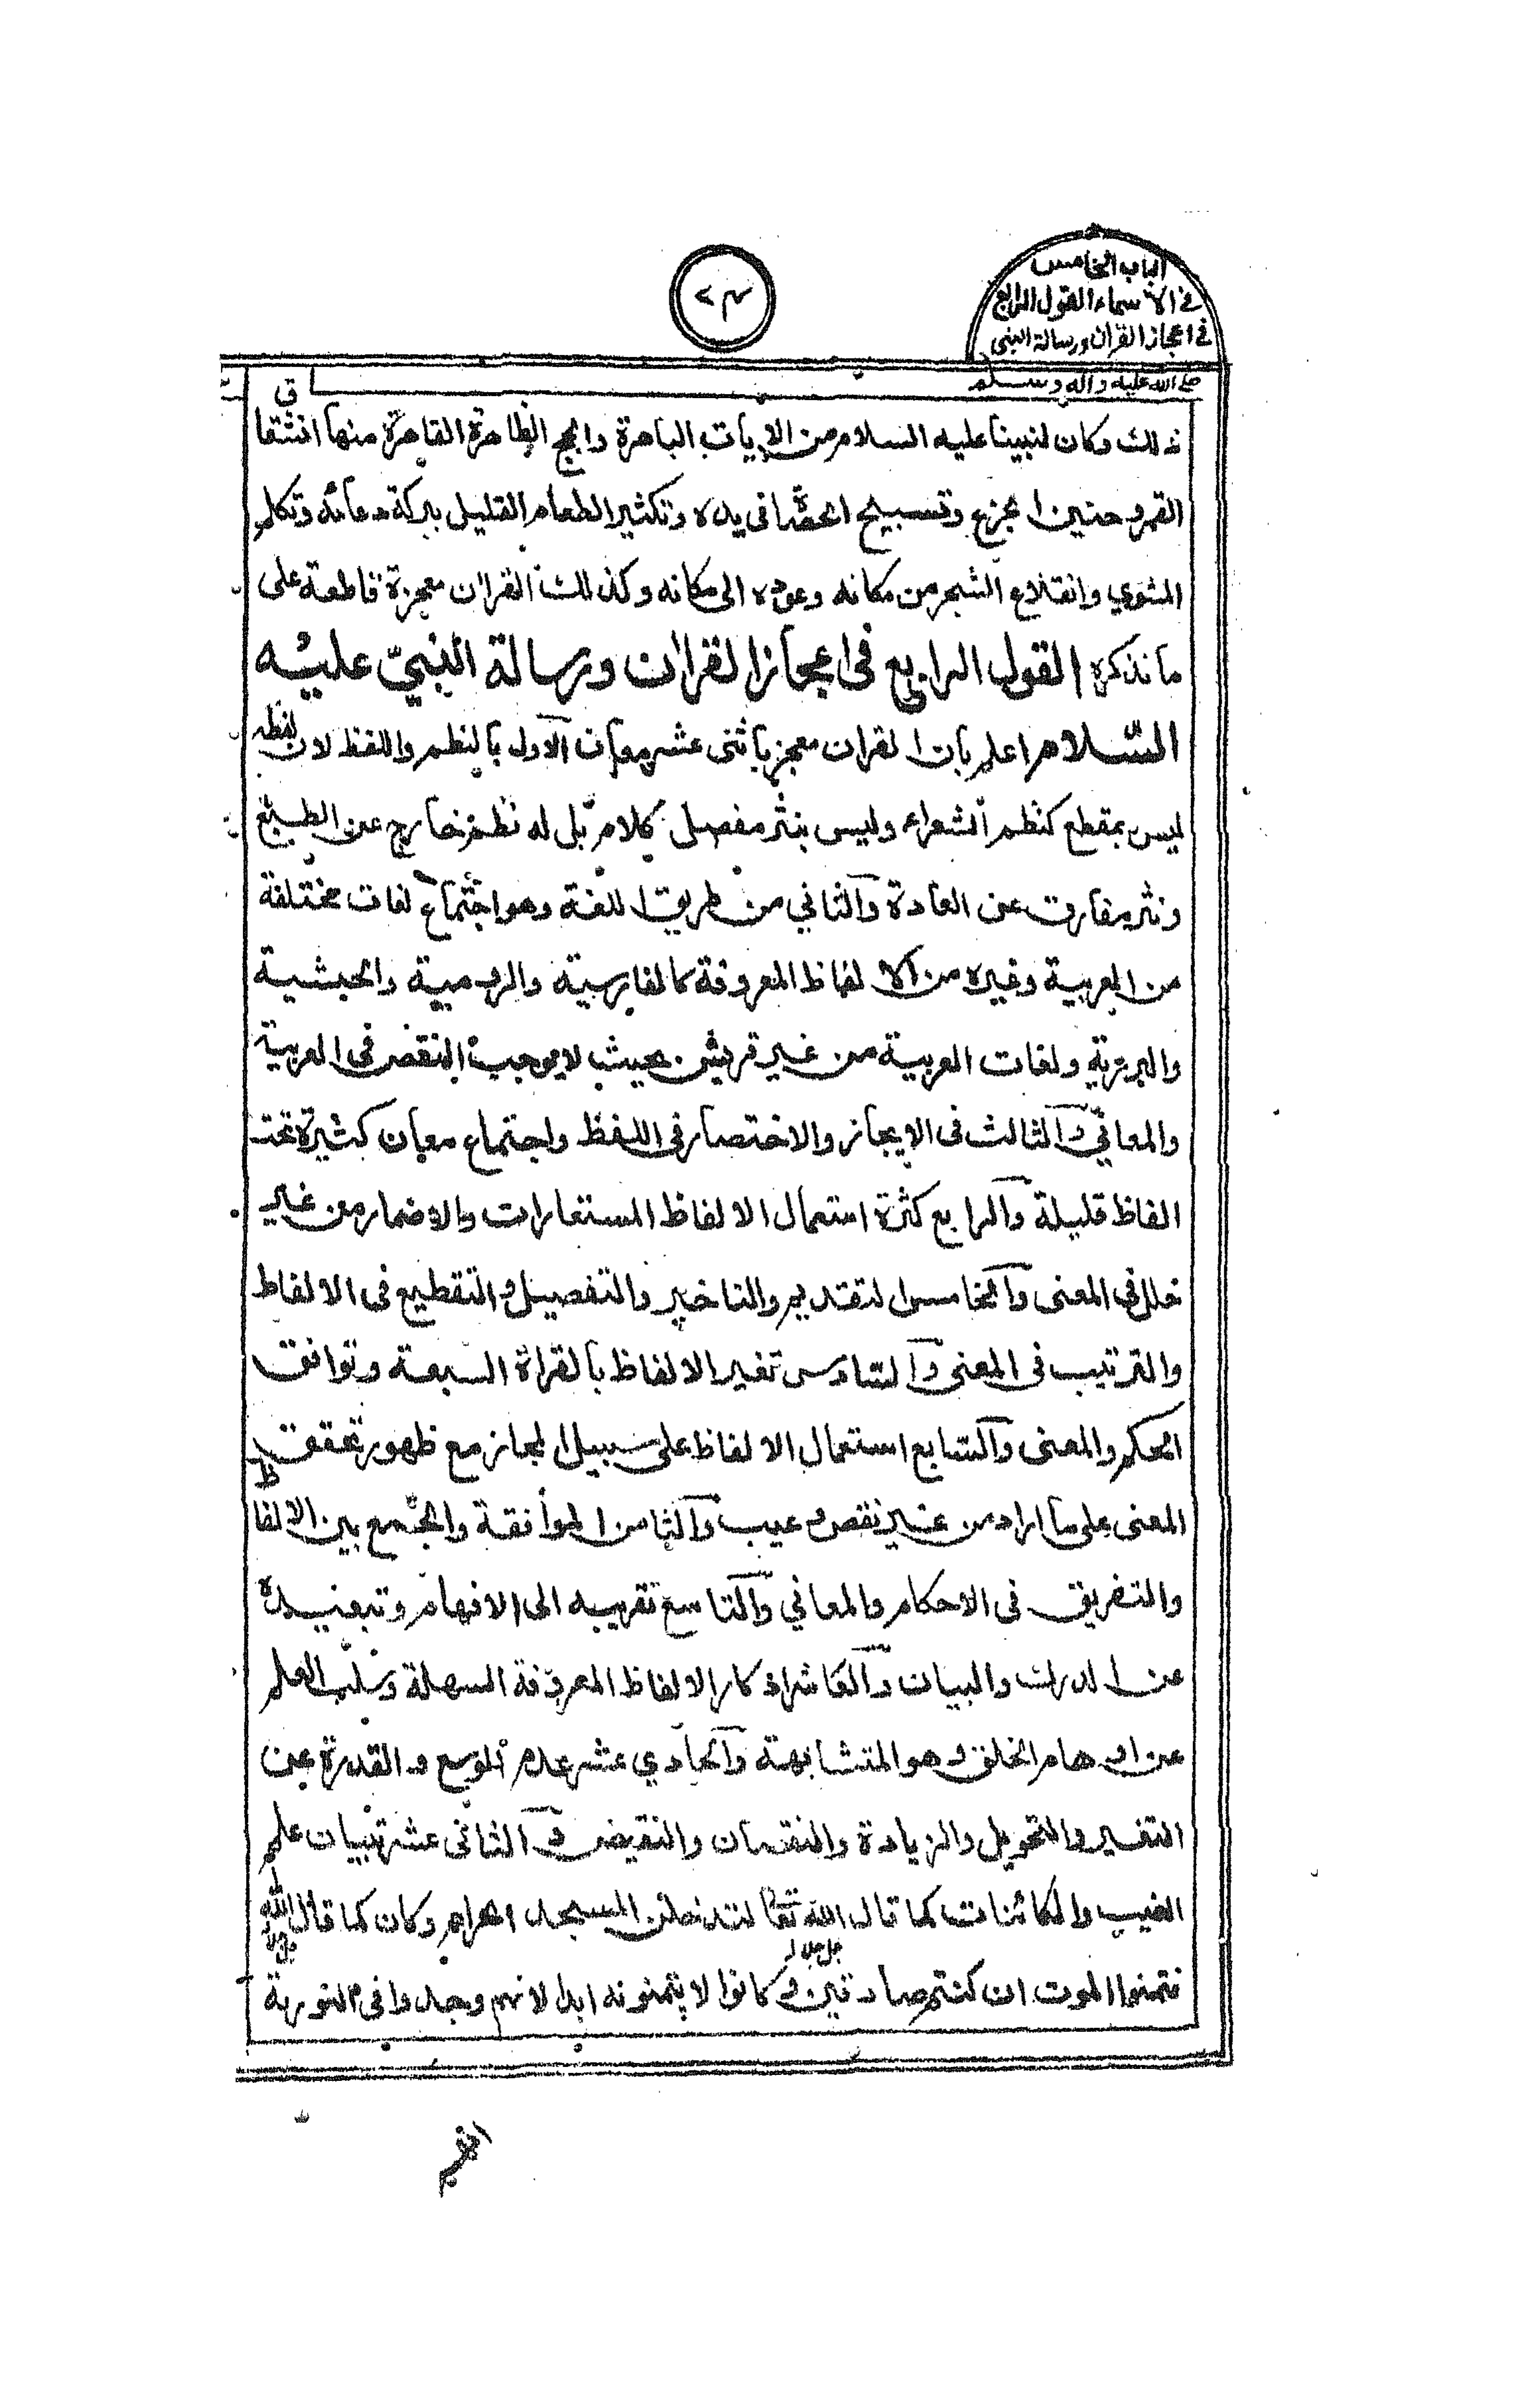 الباب الخامس
في الاسماء القول الرابع
في اعجاز القران ورسالة النبي
صلى الله عليه واله وسلم
ذلك وكان لنبينا عليه السلام من الايات الباهرة والحجج الظاهرة القاهرة منها انشقاق
القمر وحنين الجزع وتسبيح الحصا في يده وتكثير الطعام القليل ببركة دعائه وتكلم
المشوي وانقلاع الشجر من مكانه وعوده الى مكانه وكذلك القران معجزة قاطعة على
ما نذكره القول الرابع في اعجاز القران ورسالة النبيّ عليه
السّلام اعلم بان القران معجز باثنى عشر معان الاول بالنظم واللفظ لان لفظه
ليس بمقطع كنظم الشعراء وليس بنثر مفصل كلام بل له نظم خارج عن الطبع
ونثر مفارق عن العادة والثاني من طريق اللغة وهو اجتماع لغات مختلفة
من العربية وغيره من الالفاظ المعروفة كالفارسية والرومية والحبشية
والبربرية ولغات العربية من غير قريش بحيث لا يوجب النقض في العربية
والمعاني والثالث في الايجاز والاختصار في اللفظ واجتماع معان كثيرة تحت
الفاظ قليلة والرابع كثرة استعمال الالفاظ المستعارات والاضمار من غير
خلل في المعنى والخامس التقديم والتاخير والتفصيل والتقطيع في الالفاظ
والترتيب في المعنى والسّادس تغير الالفاظ بالقراة السبعة وتوافق
الحكم والمعنى والسّابع استعمال الالفاظ على سبيل المجاز مع ظهور تحقق
المعنى على ما اراد من غير نقص وعيب والثامن الموافقة والجمع بين الالفاظ
والتفريق في الاحكام والمعاني والتاسع تقريبه الى الافهام وتبعيده
عن الدرك والبيان والعاشر اذكار الالفاظ المعروفة السهلة وسلب العلم
عن اوهام الخلق وهو المتشابهة والحادي عشر عدم الوسع والقدرة عن
التغير والتحويل والزيادة والنقصان والنقيض والثاني عشر تبيان علم
الغيب والكائنات كما قال الله تعا لتدخلن المسجد الحرام وكان كما قال الله
جل جلاله
فتمنوا الموت ان كنتم صادقين وكانوا لا يتمنونه ابدا لانهم وجدوا في التورية